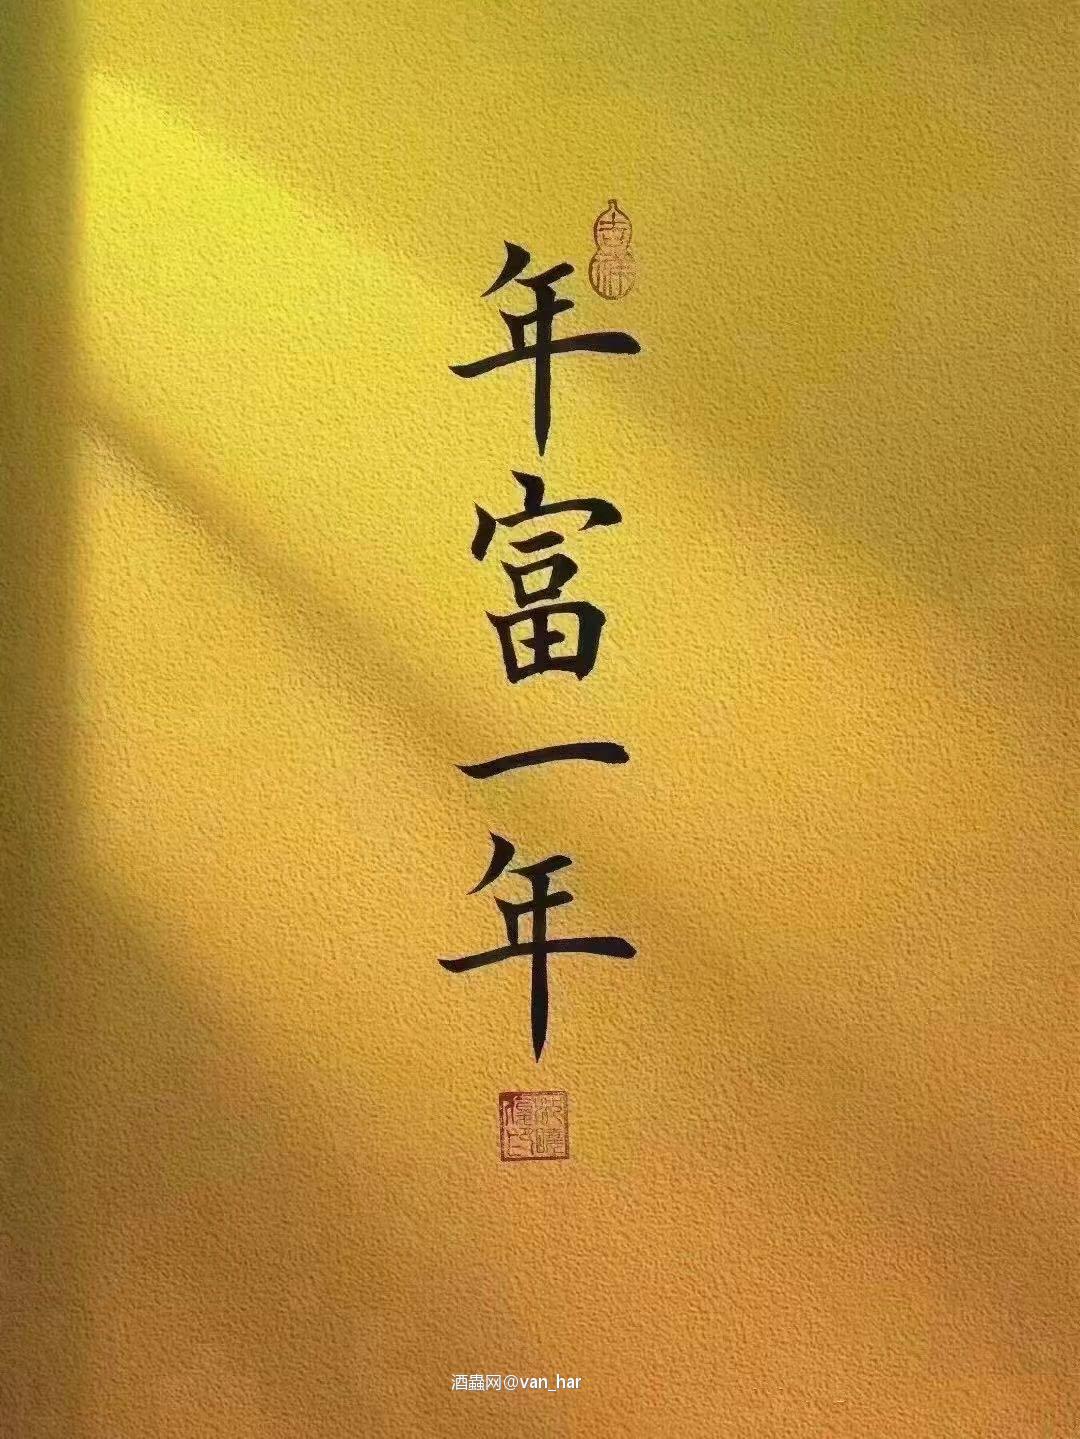 吉祥
年富一年
酒蟲网@van_har